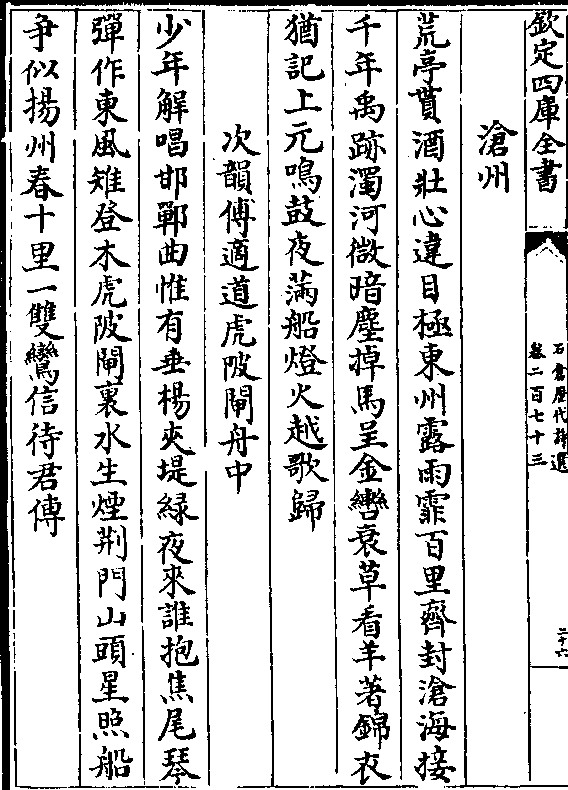 欽定四庫全書
石倉歷代詩選
卷二百七十三
二十六
滄州
荒亭貰酒壯心違目極東州露雨霏百里齊封滄海接
千年禹跡濁河微暗塵掉馬呈金轡衰草看羊著錦衣
猶記上元鳴鼓夜滿船燈火越歌歸
次韻傅適道虎陂閘舟中
少年解唱邯鄲曲惟有垂楊夾堤綠夜來誰抱焦尾琴
彈作東風雉登木虎陂閘裏水生煙荆門山頭星照船
争似揚州春十里一雙鸞信待君傳